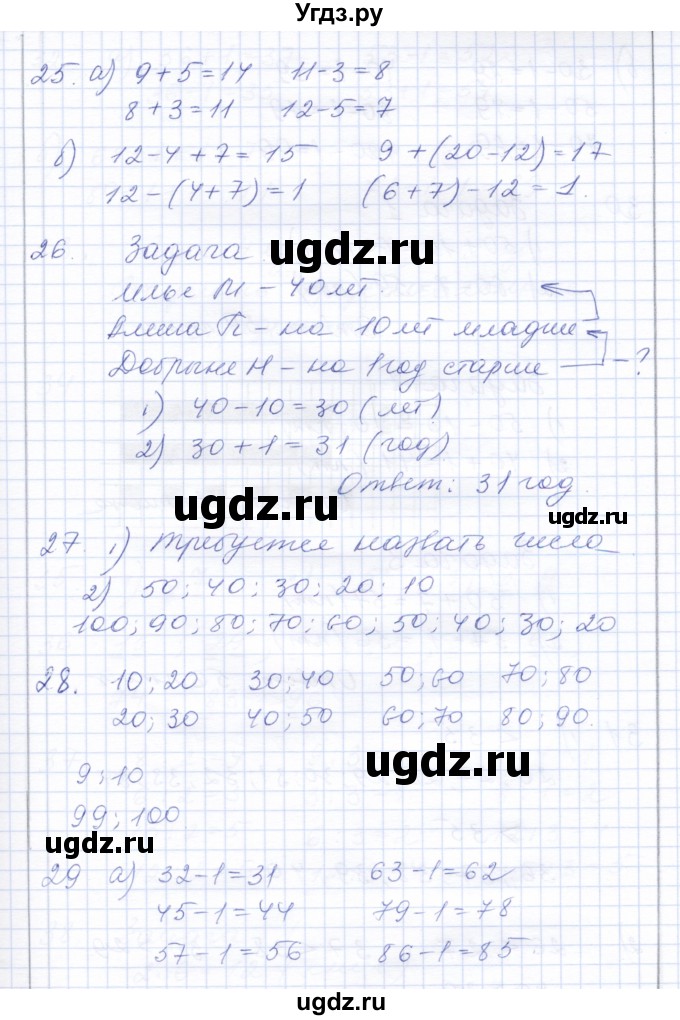 Угдз.ру
25. а) 9+5=14 11-3=8
8+3=11 12-5=7
б) 12-4+7=15 9+(20-12)=17
12-(4+7)=1 (6+7)-12=1.
26. Задача
ugdz.ru
Илье М - 40 лет.
Алеша П - на 10 лет младше
Добрыне Н - на 1 год старше - ?
1) 40-10=30 (лет)
2) 30+1=31 (год)
Ответ: 31 год.
ugdz.ru
27. 1) Требуется назвать числа
2) 50; 40; 30; 20; 10
100; 90; 80; 70; 60; 50; 40; 30; 20
28. 10; 20 30; 40 50; 60 70; 80
20; 30 40; 50 60; 70 80; 90.
ugdz.ru
9; 10
99; 100
ugdz.ru
29 а) 32-1=31 63-1=62
45-1=44 79-1=78
57-1=56 86-1=85
ugdz.ru